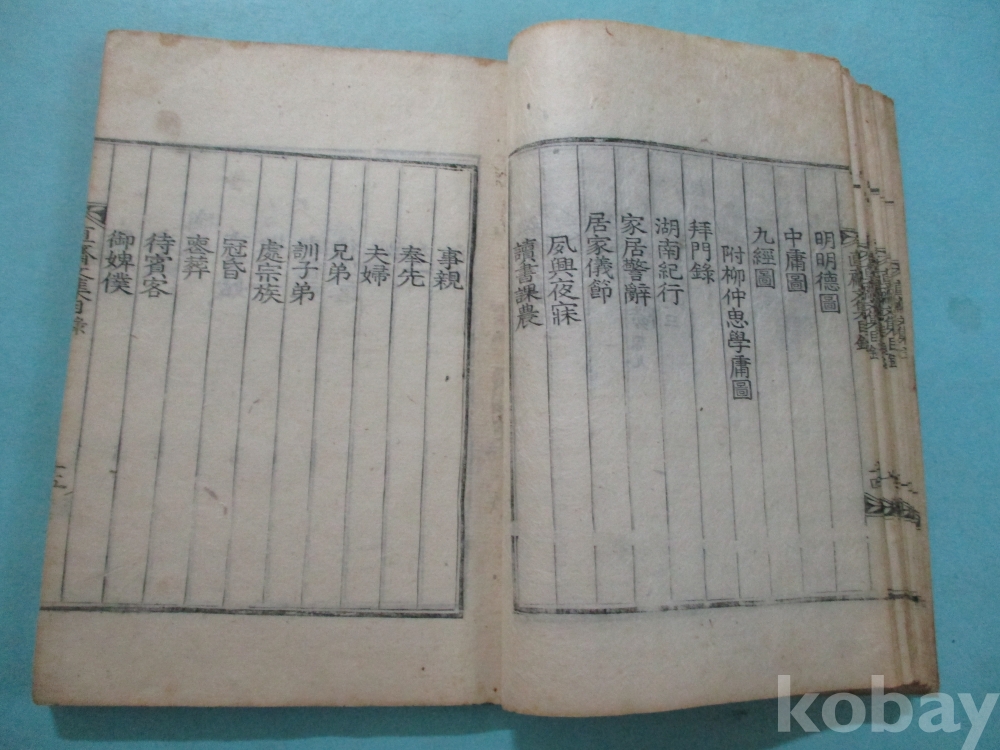 明明德圖
中庸圖
九經圖
附柳仲思學庸圖
拜門錄
湖南紀行
家居警辭
居家儀節
夙興夜寐
讀書課農
事親
奉先
夫婦
兄弟
訓子弟
處宗族
冠昏
喪葬
待賓客
御婢僕
kobay